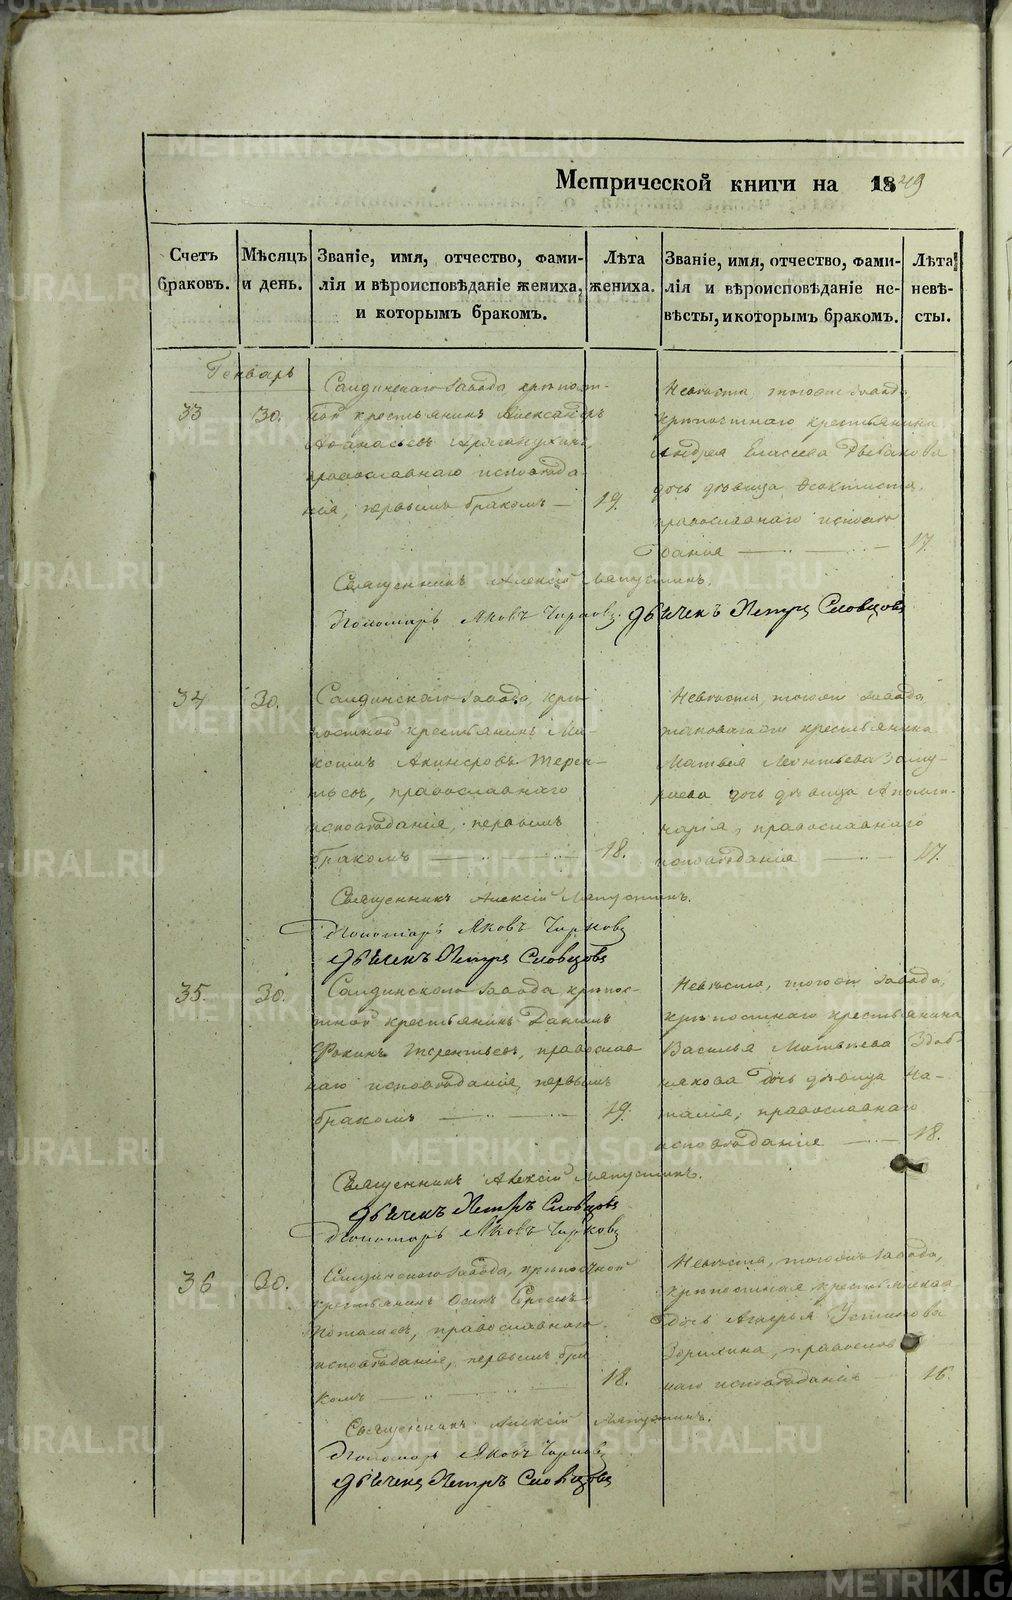 METRIKI.GASO-URAL.RU
Метрической книги на 1849
Счетъ браковъ.
Мѣсяцъ и день.
Званіе, имя, отчество, фами-
лія и вѣроисповѣданіе жениха,
и которымъ бракомъ.
Лѣта жениха.
Званіе, имя, отчество, фами-
лія и вѣроисповѣданіе не-
вѣсты, и которымъ бракомъ.
Лѣта невѣ-
сты.
Генварь
33
30.
Салдинскаго завода, крѣпост-
ной крестьянинъ Александръ
Аѳанасьевъ
православнаго исповѣда
нія, первымъ бракомъ —
19.
Невѣста, тогоже завода
крѣпостнаго крестьянина
Андрея Власьева
дочь дѣвица Ѳеоктиста,
православнаго исповѣ
данія —
17.
Священникъ Алексій Ляпустинъ.
Пономарь Яковъ Чирковъ.
Дьячекъ Петръ Словцовъ
34
30.
Салдинскаго завода, крѣ-
постной крестьянинъ
Терен-
тьевъ, православнаго
исповѣданія, первымъ
бракомъ —
18.
Невѣста, тогоже завода
крестьянина
Матвея Леонтьева
дочь дѣвица Аполи-
нарія, православнаго
исповѣданія —
17.
Священникъ Алексій Ляпустинъ.
Пономарь Яковъ Чирковъ
Дьячекъ Петръ Словцовъ
35.
30.
Салдинскаго завода крѣпос-
тной крестьянинъ Даніилъ
Фокинъ Терентьевъ, православ
наго исповѣданія, первымъ
бракомъ —
19.
Невѣста, тогоже завода,
крѣпостнаго крестьянина
Василья Матвѣева Здоб-
някова дочь дѣвица На-
талія, православнаго
исповѣданія —
18.
Священникъ Алексій Ляпустинъ.
Дьячекъ Петръ Словцовъ
Пономарь Яковъ Чирковъ
36
30.
Салдинскаго завода, крѣпостной
крестьянинъ Осипъ
православнаго
исповѣданія, первымъ бра
комъ —
18.
Невѣста, тогоже завода,
крѣпостная крестьянская
дочь Устинова
Зорихина, православ
наго исповѣданія —
16.
Священникъ Алексій Ляпустинъ.
Пономарь Яковъ Чирковъ
Дьячекъ Петръ Словцовъ